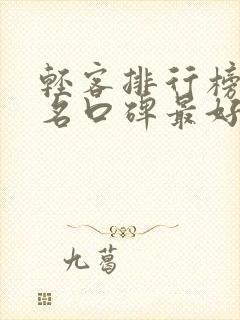 轻客排行榜
名口碑最好
九葛